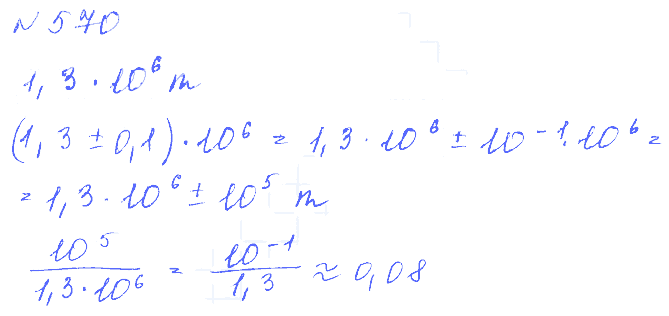 № 570
1,3 · 10⁶ т
(1,3 ± 0,1) · 10⁶ = 1,3 · 10⁶ ± 10⁻¹ · 10⁶ =
= 1,3 · 10⁶ ± 10⁵ т
10⁵ / (1,3 · 10⁶) = 10⁻¹ / 1,3 ≈ 0,08